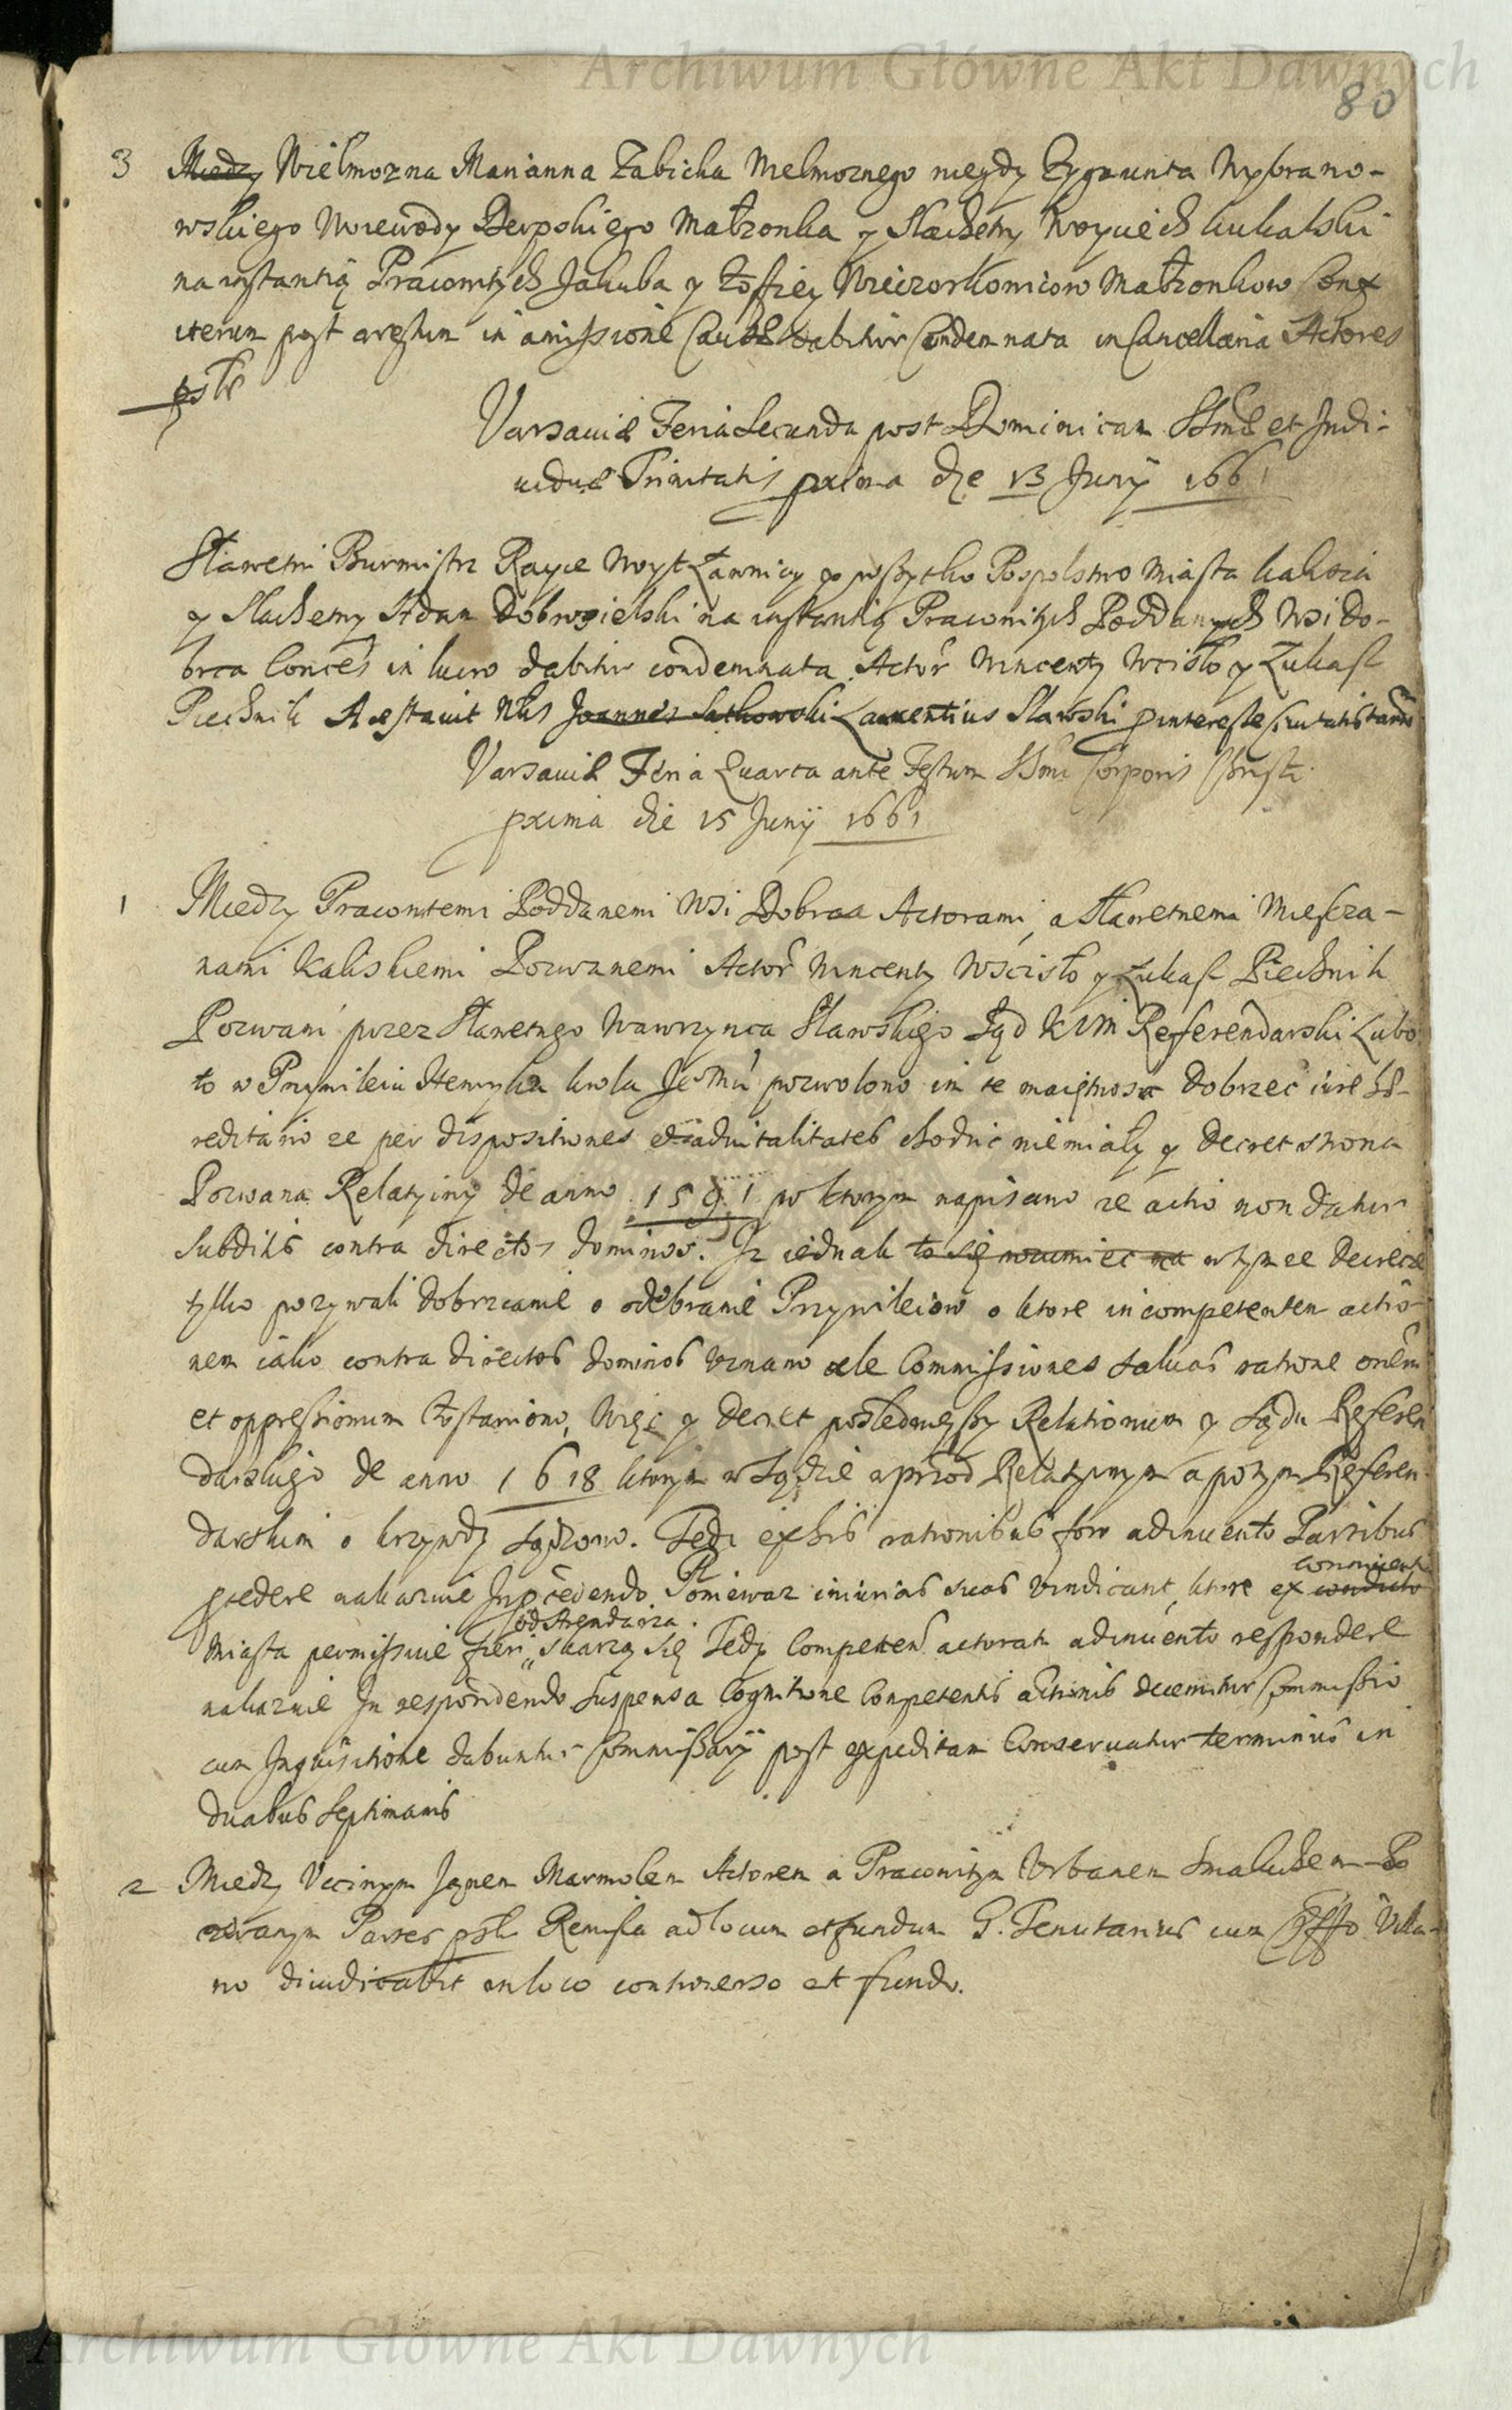 Archiwum Główne Akt Dawnych
80
3 Miedzy Wielmozna Marianna Zabicka Wielmoznego niegdy Zygmunta Wybrano-
wskiego Woiewody Derpskiego Małzonka y Slachetny Woyciech Kukalski
na instantią Pracowitych Jakuba y Zoffiey Wieczorkowicow Małzonkow Conf
iterum post arestum in amissione Causæ dabitur Condemnata in Cancellaria Actores
pste
Varsaviæ Feria Secunda post Dominicam SSmæ et Indi-
viduæ Trinitatis proxima die 13 Junÿ 1661
Sławetni Burmistrz Rayce Woyt Ławnicy y wszytko Pospolstwo Miasta Kalisza
y Slachetny Adam Dobrogielski na instantią Pracowitych Poddanych Wsi Do-
brca Conces in lucro dabitur condemnata Actor Wincenty Wcisło y Łukasz
Piechnik Arestavit Nbs Joannes Sutkowski Laurentius Slawski p interesse Civitatis tand
Varsaviæ Feria Quarta ante Festum SSmi Corporis Christi
proxima die 15 Junÿ 1661
1 Miedzy Pracowitemi Poddanemi Wsi Dobrca Actorami, a Sławetnemi Miescza-
nami Kaliskiemi Pozwanemi Actor Wincenty Wscisło y Łukasz Piechnik
Pozwani przez Sławetnego Wawrzynca Slawskiego Sąd KJM Referendarski Lubo
to w Przywileiu Henryka krola Je Mci pozwolono im te maiętnosc Dobrzec iure hæ-
reditario ze per dispositiones et advitalitates chodzic niemiały y Decret strona
Pozwana Relatyiny de anno 1591 w ktorym napisano ze actio non datur
Subditis contra directos dominos. Iz iednak to się rozumiec ma w tymze Decrecie
tylko pozywali Dobrzcanie o odebranie Przywileiow o ktore incompetentem actio-
nem iako contra directos dominos uznano ale Commissiones salvas ratione onerum
et oppressionum zostawiono, Więc y Decret poslednieyszy Relationum y Sądu Referen
darskiego de anno 1618 ktorym w Sądzie a przod Relatyinym a potym Referen-
darskim o krzywdy sądzono. Tedy ex his rationibus foro adinvento Partibus
pcedere nakazuie In pcedendo Poniewaz iniurias suas vindicant, ktore ex conducto conniventi
Miasta permissive fieri od Arendarza skarzą się Tedy Competen actoratu adinvento respondere
nakazuie In respondendo suspensa Cognitione Competentis actionis decernitur Commissio
cum Inquisitione dabuntur Commissarÿ post expeditam Conservatur terminus in
duabus Septimanis
2 Miedzy Ucciwym Janem Marmolem Actorem a Pracowitym Urbanem Smaluchem Po
zwanym Partes pste Remissa ad locum et fundum G. Tenutarius cum Offo Villa-
no diiudicabit in loco controverso et fundo.
Archiwum Główne Akt Dawnych